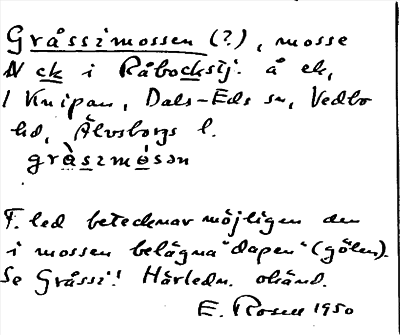 Gråssimossen (?), mosse
N ck i Råbockstj. å ek,
1 Knipan, Dals-Eds sn, Vedbo
hd, Älvsborgs l.
gràsimósən
F. led betecknar möjligen den
i mossen belägna "dapen" (gölen).
Se Gråssi! Härledn. okänd.
E. Rosell 1950